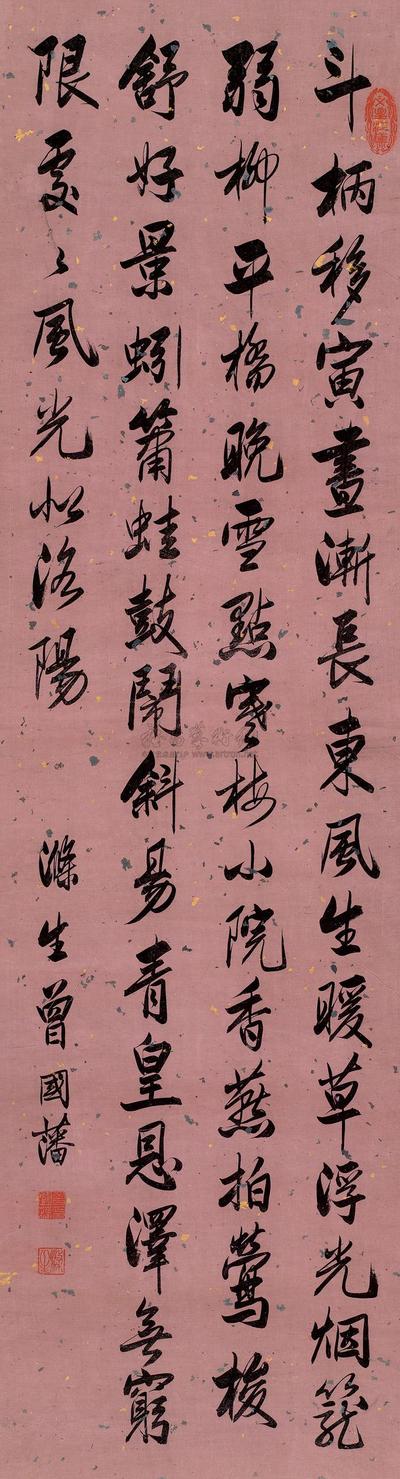 斗柄移寅晝漸長東風生暖草浮光烟籠
弱柳平橋晚雪點寒梅小院香燕拍鶯梭
舒好景蚓簫蛙鼓鬧斜昜青皇恩澤無窮
限處〻風光似洛陽
滌生曾國藩